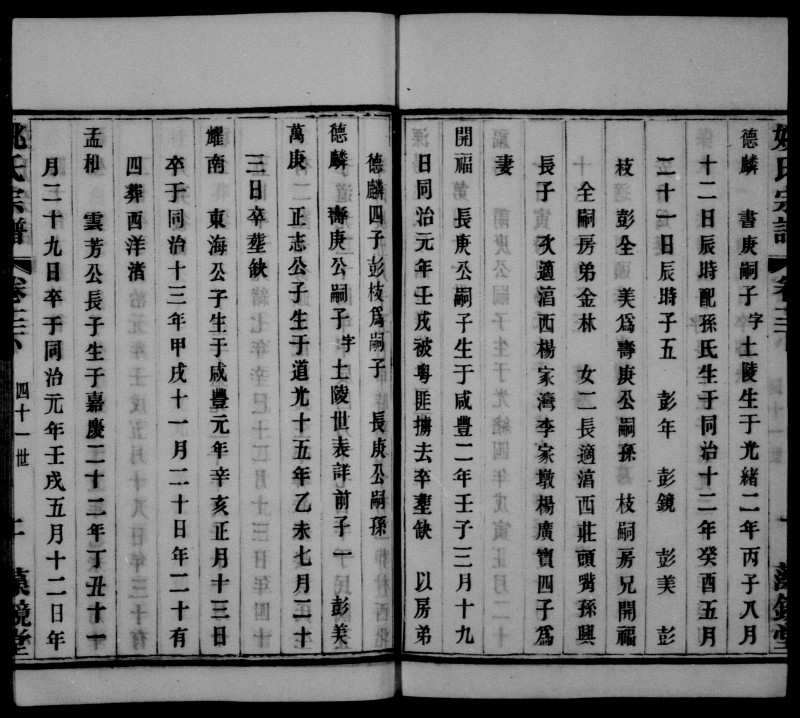 德麟 書庚嗣子字士陵生于光緒二年丙子八月
十二日辰時配孫氏生于同治十二年癸酉五月
二十一日辰時子五 彭年 彭鏡 彭美 彭
枝 彭全 美爲壽庚公嗣孫 枝嗣房兄開福
全嗣房弟金林 女二長適湻西莊頭嘴孫興
長子 次適湻西楊家灣李家墩楊廣寶四子爲
妻
開福 長庚公嗣子生于咸豐二年壬子三月十九
日同治元年壬戌被粵匪擄去卒塟缺 以房弟
德麟四子彭枝爲嗣子 長庚公嗣孫
德麟 壽庚公嗣子字士陵世表詳前子一 彭美
萬庚 正志公子生于道光十五年乙未七月二十
三日卒塟缺
耀南 東海公子生于咸豐元年辛亥正月十三日
卒于同治十三年甲戌十一月二十日年二十有
四葬西洋渚
孟和 雲芳公長子生于嘉慶二十二年丁丑十一
月二十九日卒于同治元年壬戌五月十二日年
姚氏宗譜 卷三 四十一世 藻鏡堂